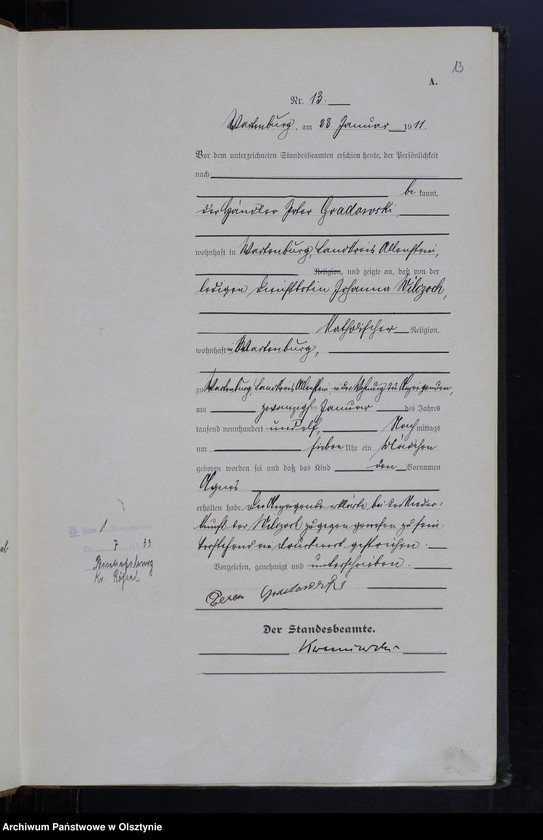 13
A.
Nr. 13.
Wartenburg, am 23 Januar 1911.
Vor dem unterzeichneten Standesbeamten erschien heute, der Persönlichkeit
nach
be kannt,
der Händler Peter Gradowski
wohnhaft in Wartenburg, Landkreis Allenstein,
Religion, und zeigte an, daß von der
ledigen Dienstbotin Johanna Wilczoch,
katholischer Religion,
wohnhaft in Wartenburg,
zu Wartenburg, Landkreis Allenstein, in der Wohnung des Anzeigenden,
am zwanzigsten Januar des Jahres
tausend neunhundert und elf, Nach mittags
um sieben Uhr ein Mädchen
geboren worden sei und daß das Kind den Vornamen
Agnes
erhalten habe. Der Anzeigende erklärte bei der Nieder-
kunft der Wilczoch zugegen gewesen zu sein.
Vorstehend ein Druckwort gestrichen.
Vorgelesen, genehmigt und unterschrieben.
Peter Gradowski
Der Standesbeamte.
1
7
Kr. Rößel
Archiwum Państwowe w Olsztynie